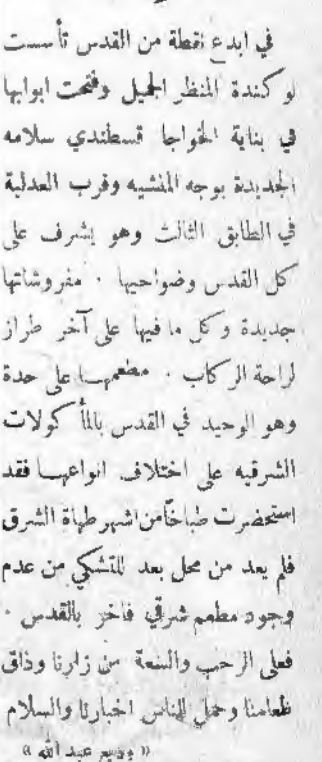 في ابدع نقطة من القدس تأسست
لوكندة المنظر الجميل وفتحت ابوابها
في بناية الخواجا قسطندي سلامه
الجديدة بوجه المنشيه وقرب العدلية
في الطابق الثالث وهو يشرف على
كل القدس وضواحيها . مفروشاتها
جديدة وكل ما فيها على آخر طراز
لراحة الركاب . مطعمها على حدة
وهو الوحيد في القدس بالمأكولات
الشرقيه على اختلاف انواعها فقد
استحضرت طباخاً من اشهر طهاة الشرق
فلم يعد من محل بعد للتشكي من عدم
وجود مطعم شرقي فاخر بالقدس .
فعلى الرحب والسعة من زارنا وذاق
طعامنا وحمل للناس اخبارنا والسلام
« وديع عبد الله »